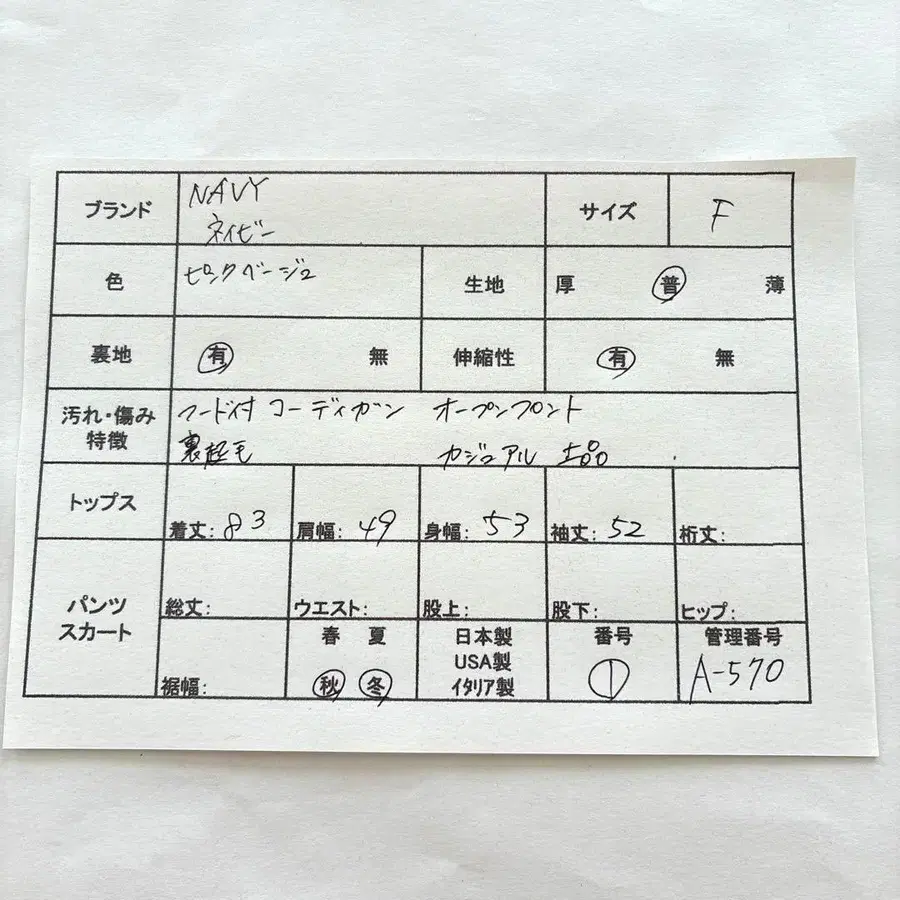 ブランド NAVY サイズ F
ネイビー
色 ピンクベージュ 生地 厚 普 薄
裏地 有 無 伸縮性 有 無
汚れ・傷み フード付 コーディガン オープンフロント
特徴 裏起毛 カジュアル 上品
トップス
着丈: 83 肩幅: 49 身幅: 53 袖丈: 52 裄丈:
パンツ
スカート
総丈: ウエスト: 股上: 股下: ヒップ:
春 夏 日本製 番号 管理番号
USA製
裾幅: 秋 冬 イタリア製 1 A-570